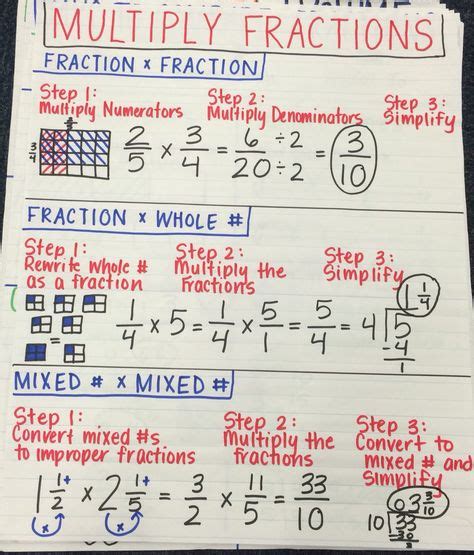 MULTIPLY FRACTIONS
FRACTION x FRACTION
Step 1: Multiply Numerators
Step 2: Multiply Denominators
Step 3: Simplify
3/4
2/5 × 3/4 = 6/20 ÷2/÷2 = 3/10
FRACTION x WHOLE #
Step 1: Rewrite whole # as a fraction
Step 2: Multiply the Fractions
Step 3: Simplify
1/4 × 5 = 1/4 × 5/1 = 5/4 = 4)5
1 1/4
-4
1
=
MIXED # x MIXED #
Step 1: Convert mixed #s to improper fractions
Step 2: Multiply the fractions
Step 3: Convert to mixed # and Simplify
1 1/2 × 2 1/5 = 3/2 × 11/5 = 33/10
+ +
x x
03 3/10
10)33
-30
3